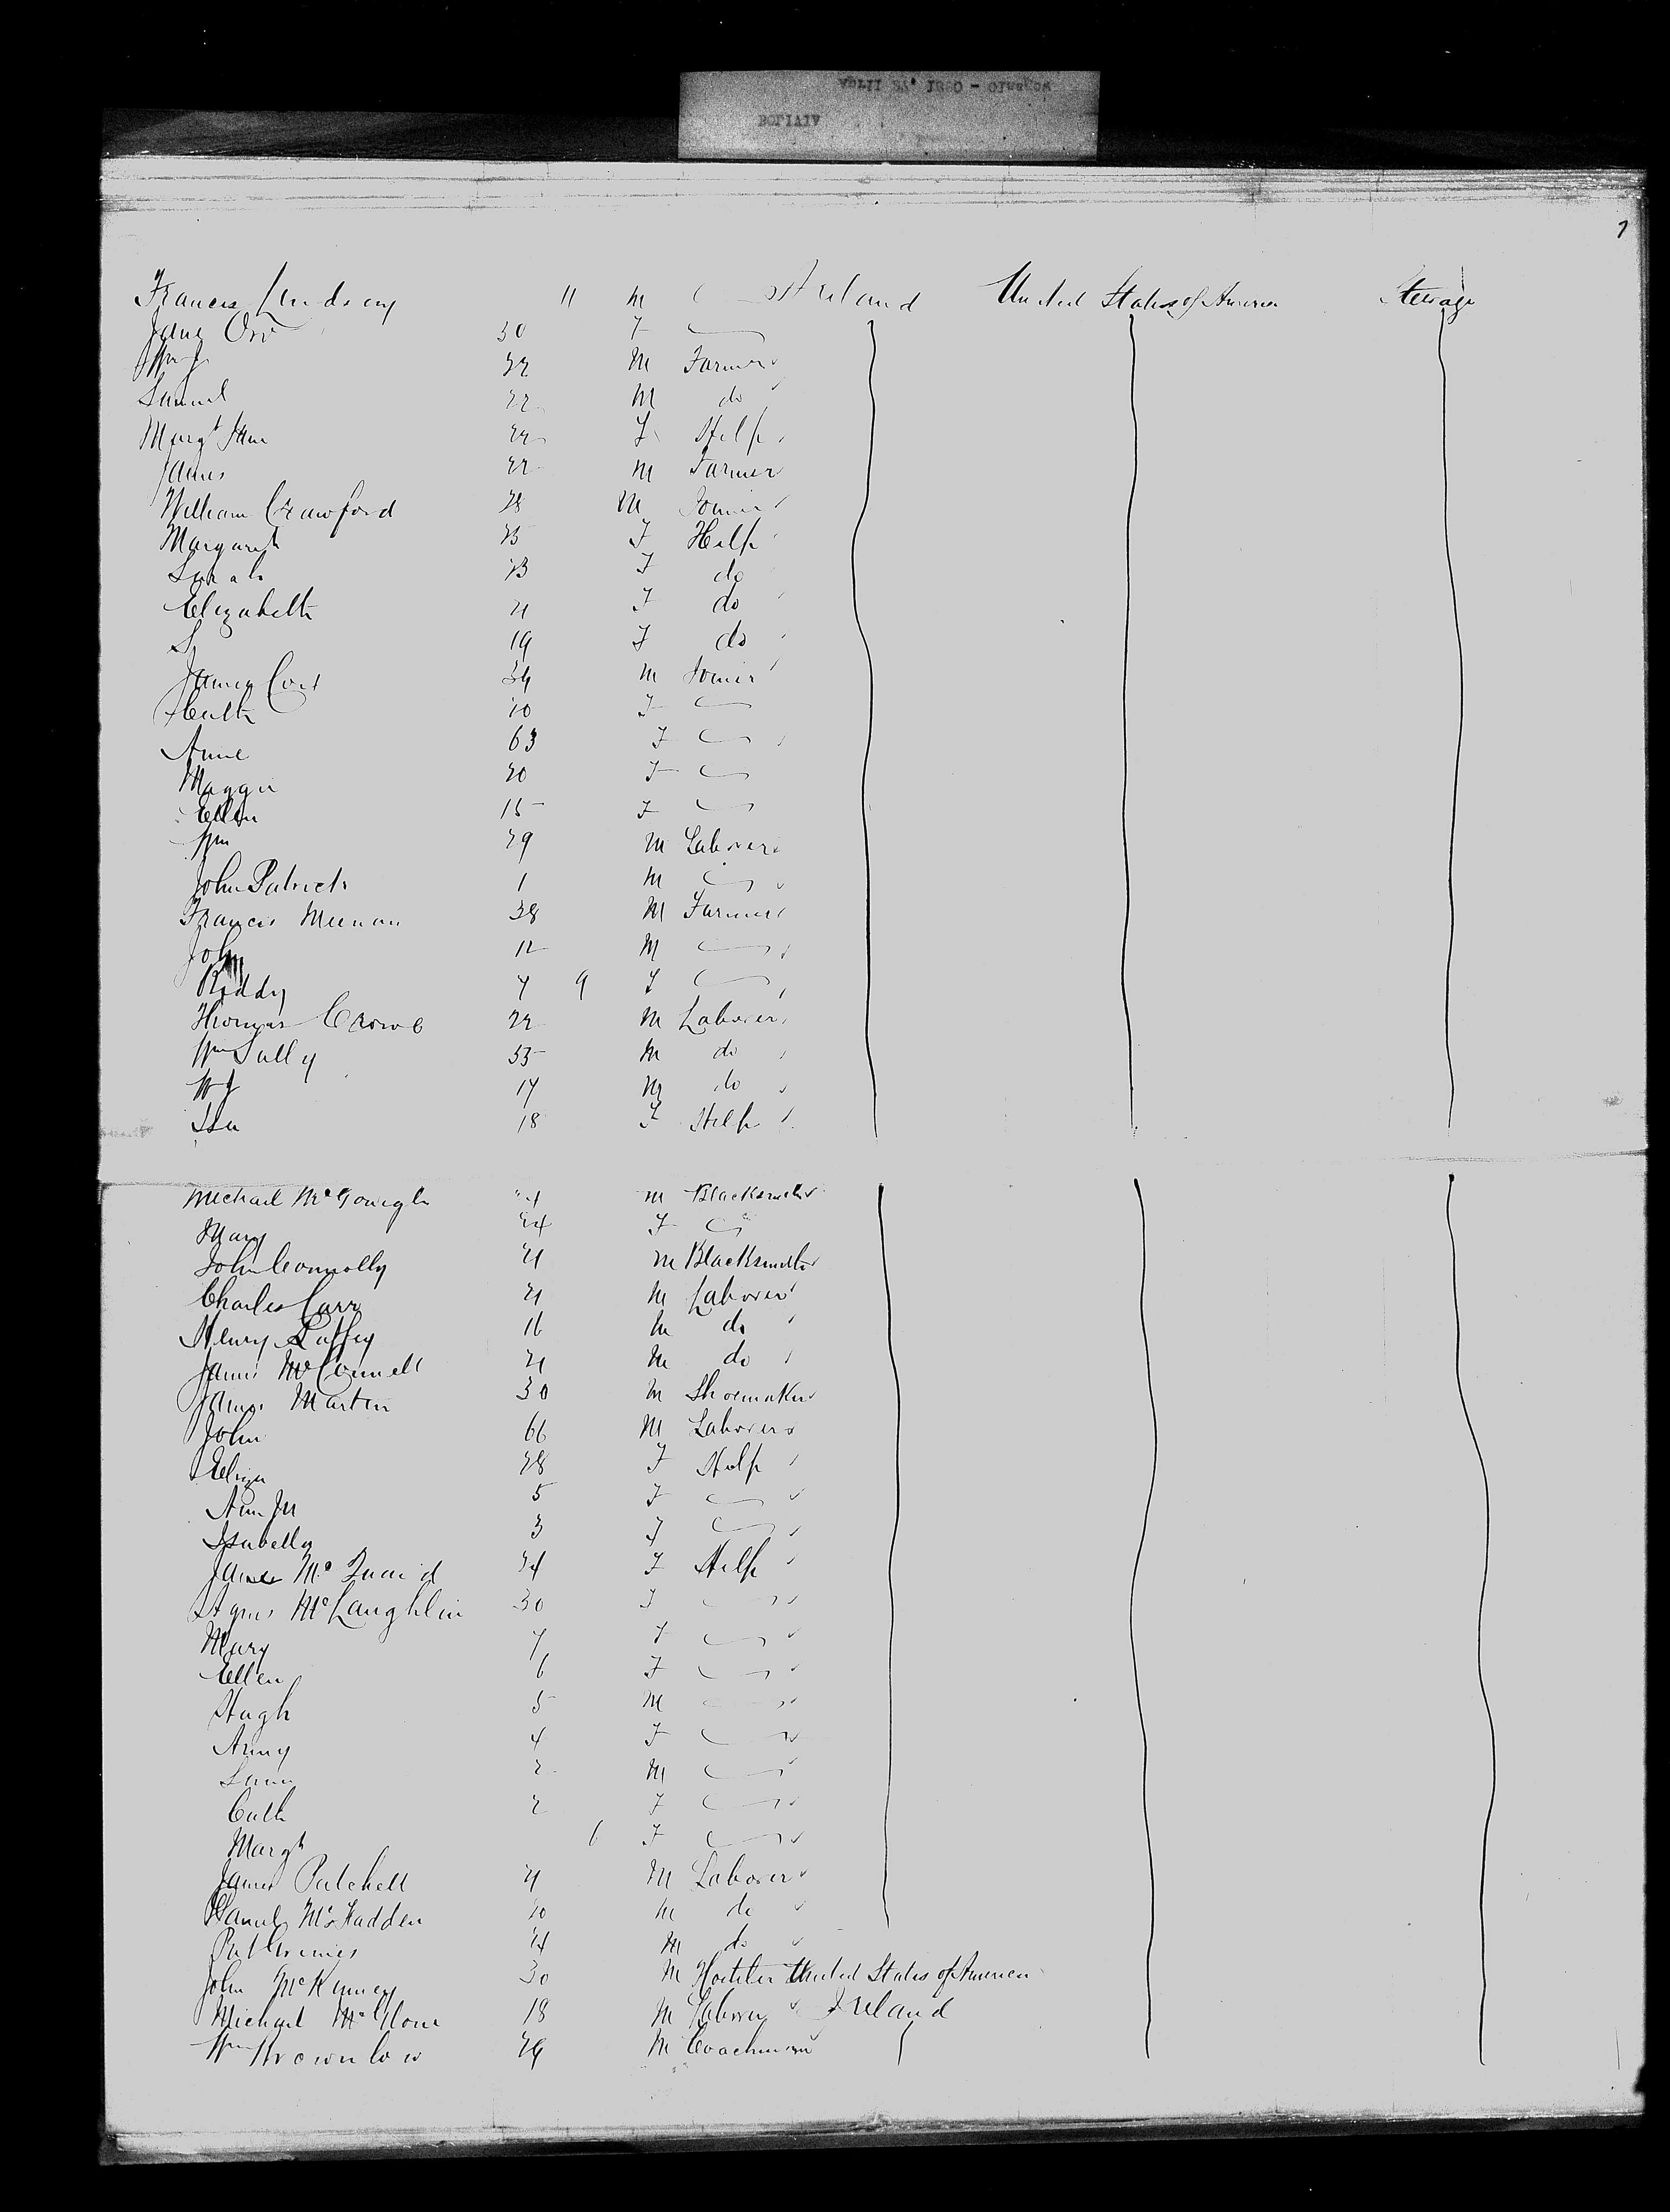 7
Francis Lindsay 11 M Ireland United States of America Steerage
Jane Orr 50 F
Wm J 22 M Farmer
Samuel 22 M do
Margt Jane 22 F Help
James 22 M Farmer
William Crawford 28 M Joiner
Margaret 25 F Help
Sarah 23 F do
Elizabeth 21 F do
S 19 F do
James M Joiner
F
Anne 63 F
Maggie 20 F
Ellen 15 F
Wm 29 M Laborer
John Patrick 1 M
Francis Meenan 38 M Farmer
John 12 M
9 F
Thomas Crowe 22 M Laborer
Wm Sally 55 M do
W J 17 M do
18 F Help
Michael McGonigle 24 M Blacksmith
Mary 24 F
John Connolly 21 M Blacksmith
Charles Carr 21 M Laborer
Henry Laffey 16 M do
James McConnell 21 M do
James Martin 30 M Shoemaker
John 66 M Laborer
Eliza 28 F Help
Ann Jn 5 F
Isabella 3 F
McQuaid 24 F Help
Agnes McLaughlin 30 F
Mary 7 F
Ellen 6 F
Hugh 5 M
Anny 4 F
2 M
Cath 2 F
Margt 6 F
James Patchell 21 M Laborer
Daniel McFadden 20 M do
Pat Grimes 24 M do
John McKinney 30 M Hostler United States of America
Michael McGlone 18 M Laborer Ireland
Wm Brownlow 26 M Coachman